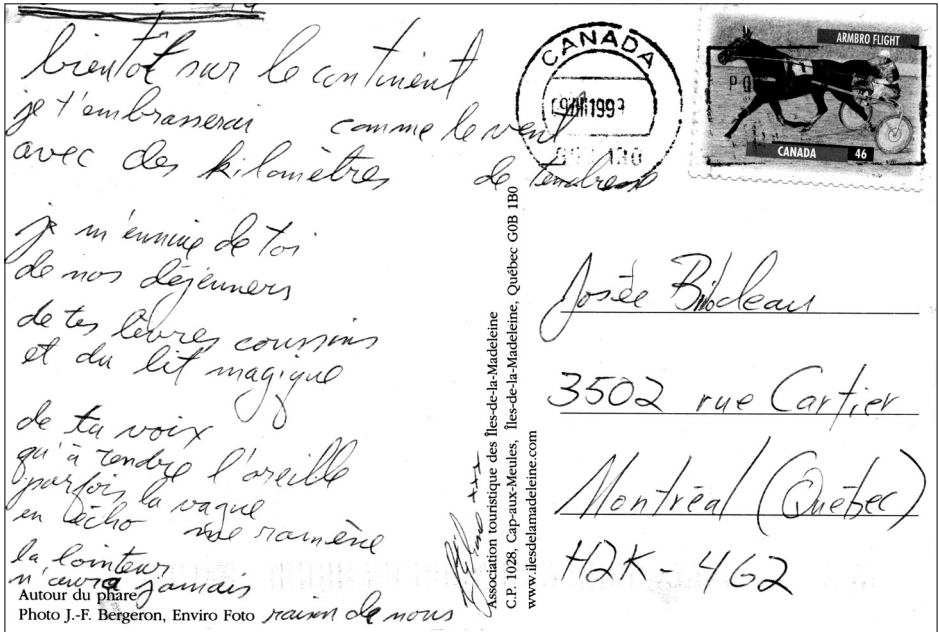 bientôt sur le continent
je t'embrasserai comme le vent
avec des kilomètres de tendresse
je m'ennuie de toi
de nos déjeuners
de tes lèvres coussins
et du lit magique
de ta voix
qu'à tendre l'oreille
parfois la vague
en écho me ramène
la lointeur
n'aura jamais
raison de nous
Autour du phare
Photo J.-F. Bergeron, Enviro Foto
CANADA
1999
ARMBRO FLIGHT
CANADA 46
Association touristique des Îles-de-la-Madeleine
C.P. 1028, Cap-aux-Meules, Îles-de-la-Madeleine, Québec G0B 1B0
www.ilesdelamadeleine.com
Josée Bilodeau
3502 rue Cartier
Montréal (Québec)
H2K-4G2